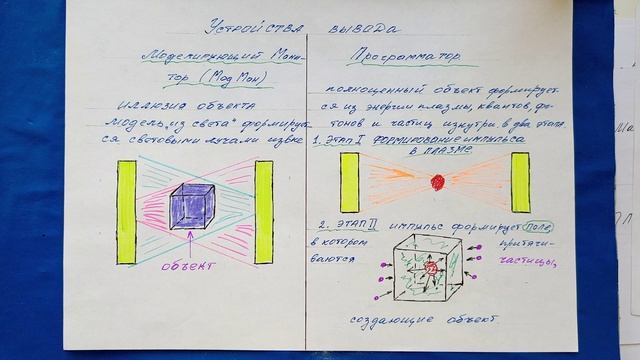 Устройства вывода
Моделирующий Мони-
тор (МодМон)
иллюзия объекта
модель „из света" формирует
ся световыми лучами извне
объект
Программатор
полноценный объект формирует-
ся из энергии плазмы, квантов, фо-
тонов и частиц изнутри в два этапа.
1. ЭТАП I ФОРМИРОВАНИЕ ИМПУЛЬСА
В ПЛАЗМЕ
2. ЭТАП II импульс формирует поле,
в котором притяги-
ваются частицы,
создающие объект.